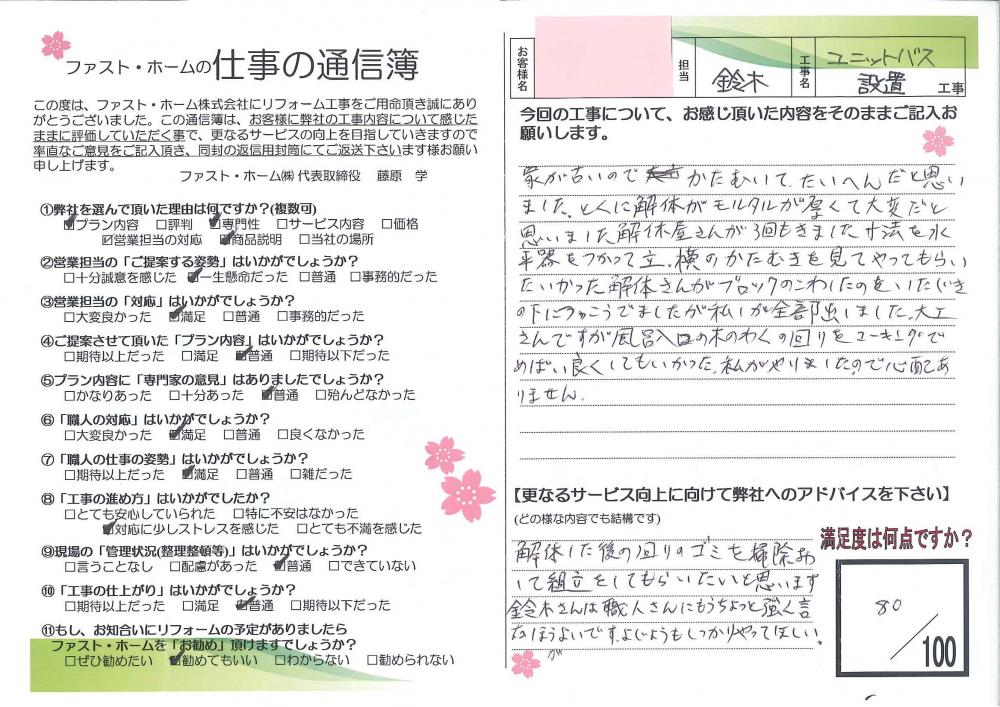 ファスト・ホームの仕事の通信簿
この度は、ファスト・ホーム株式会社にリフォーム工事をご用命頂き誠にあり
がとうございました。この通信簿は、お客様に弊社の工事内容について感じた
ままに評価していただく事で、更なるサービスの向上を目指していきますので
率直なご意見をご記入頂き、同封の返信用封筒にてご返送下さいます様お願い
申し上げます。
ファスト・ホーム㈱ 代表取締役 藤原 学
①弊社を選んで頂いた理由は何ですか？(複数可)
☑プラン内容 □評判 ☑専門性 □サービス内容 □価格
☑営業担当の対応 ☑商品説明 □当社の場所
②営業担当の「ご提案する姿勢」はいかがでしょうか？
□十分誠意を感じた ☑一生懸命だった □普通 □事務的だった
③営業担当の「対応」はいかがでしょうか？
□大変良かった ☑満足 □普通 □事務的だった
④ご提案させて頂いた「プラン内容」はいかがでしょうか？
□期待以上だった □満足 ☑普通 □期待以下だった
⑤プラン内容に「専門家の意見」はありましたでしょうか？
□かなりあった □十分あった ☑普通 □殆んどなかった
⑥「職人の対応」はいかがでしょうか？
□大変良かった ☑満足 □普通 □良くなかった
⑦「職人の仕事の姿勢」はいかがでしょうか？
□期待以上だった ☑満足 □普通 □雑だった
⑧「工事の進め方」はいかがでしたか？
□とても安心していられた □特に不安はなかった
☑対応に少しストレスを感じた □とても不満を感じた
⑨現場の「管理状況(整理整頓等)」はいかがでしょうか？
□言うことなし □配慮があった ☑普通 □できていない
⑩「工事の仕上がり」はいかがでしょうか？
□期待以上だった □満足 ☑普通 □期待以下だった
⑪もし、お知合いにリフォームの予定がありましたら
ファスト・ホームを「お勧め」頂けますでしょうか？
□ぜひ勧めたい ☑勧めてもいい □わからない □勧められない
お客様名 担当 鈴木 工事名 ユニットバス
設置 工事
今回の工事について、お感じ頂いた内容をそのままご記入お
願いします。
家が古いので かたむいて、たいへんだと思い
ました。とくに解体がモルタルが厚くて大変だと
思いました解体屋さんが3回もきました 寸法を水
平器をつかって立、横のかたむきを見てやってもらい
たいかった解体さんがブロックのこわしたのを
の下に でましたが私しが全部出しました。大工
さんですが風呂入口の木のわくの回りをコーキングで
めばい良くしてもいかった、私がやりましたので心配あ
りません。
【更なるサービス向上に向けて弊社へのアドバイスを下さい】
(どの様な内容でも結構です)
満足度は何点ですか？
解体した後の回りのゴミを掃除お
して組立をしてもらいたいと思います
鈴木さんは職人さんにもうちょっと強く言
たほうがよいです。よじょうもしっかりやってほしい！
80/100